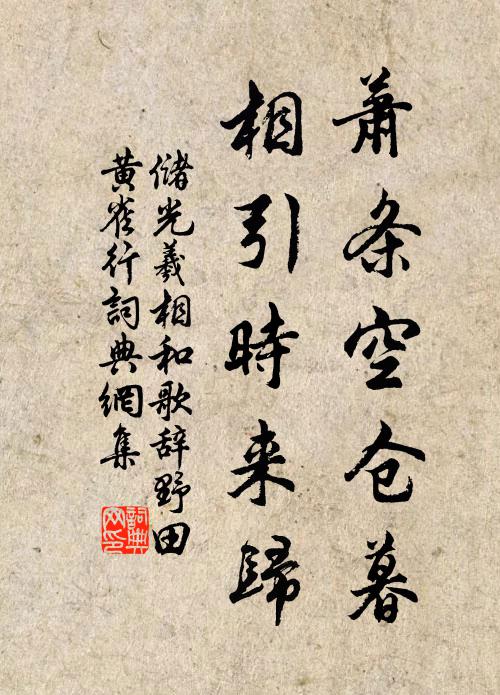 萧条空仓暮
相引時来歸
储光羲相和歌辞野田
黄雀行詞典網集
詞典网印